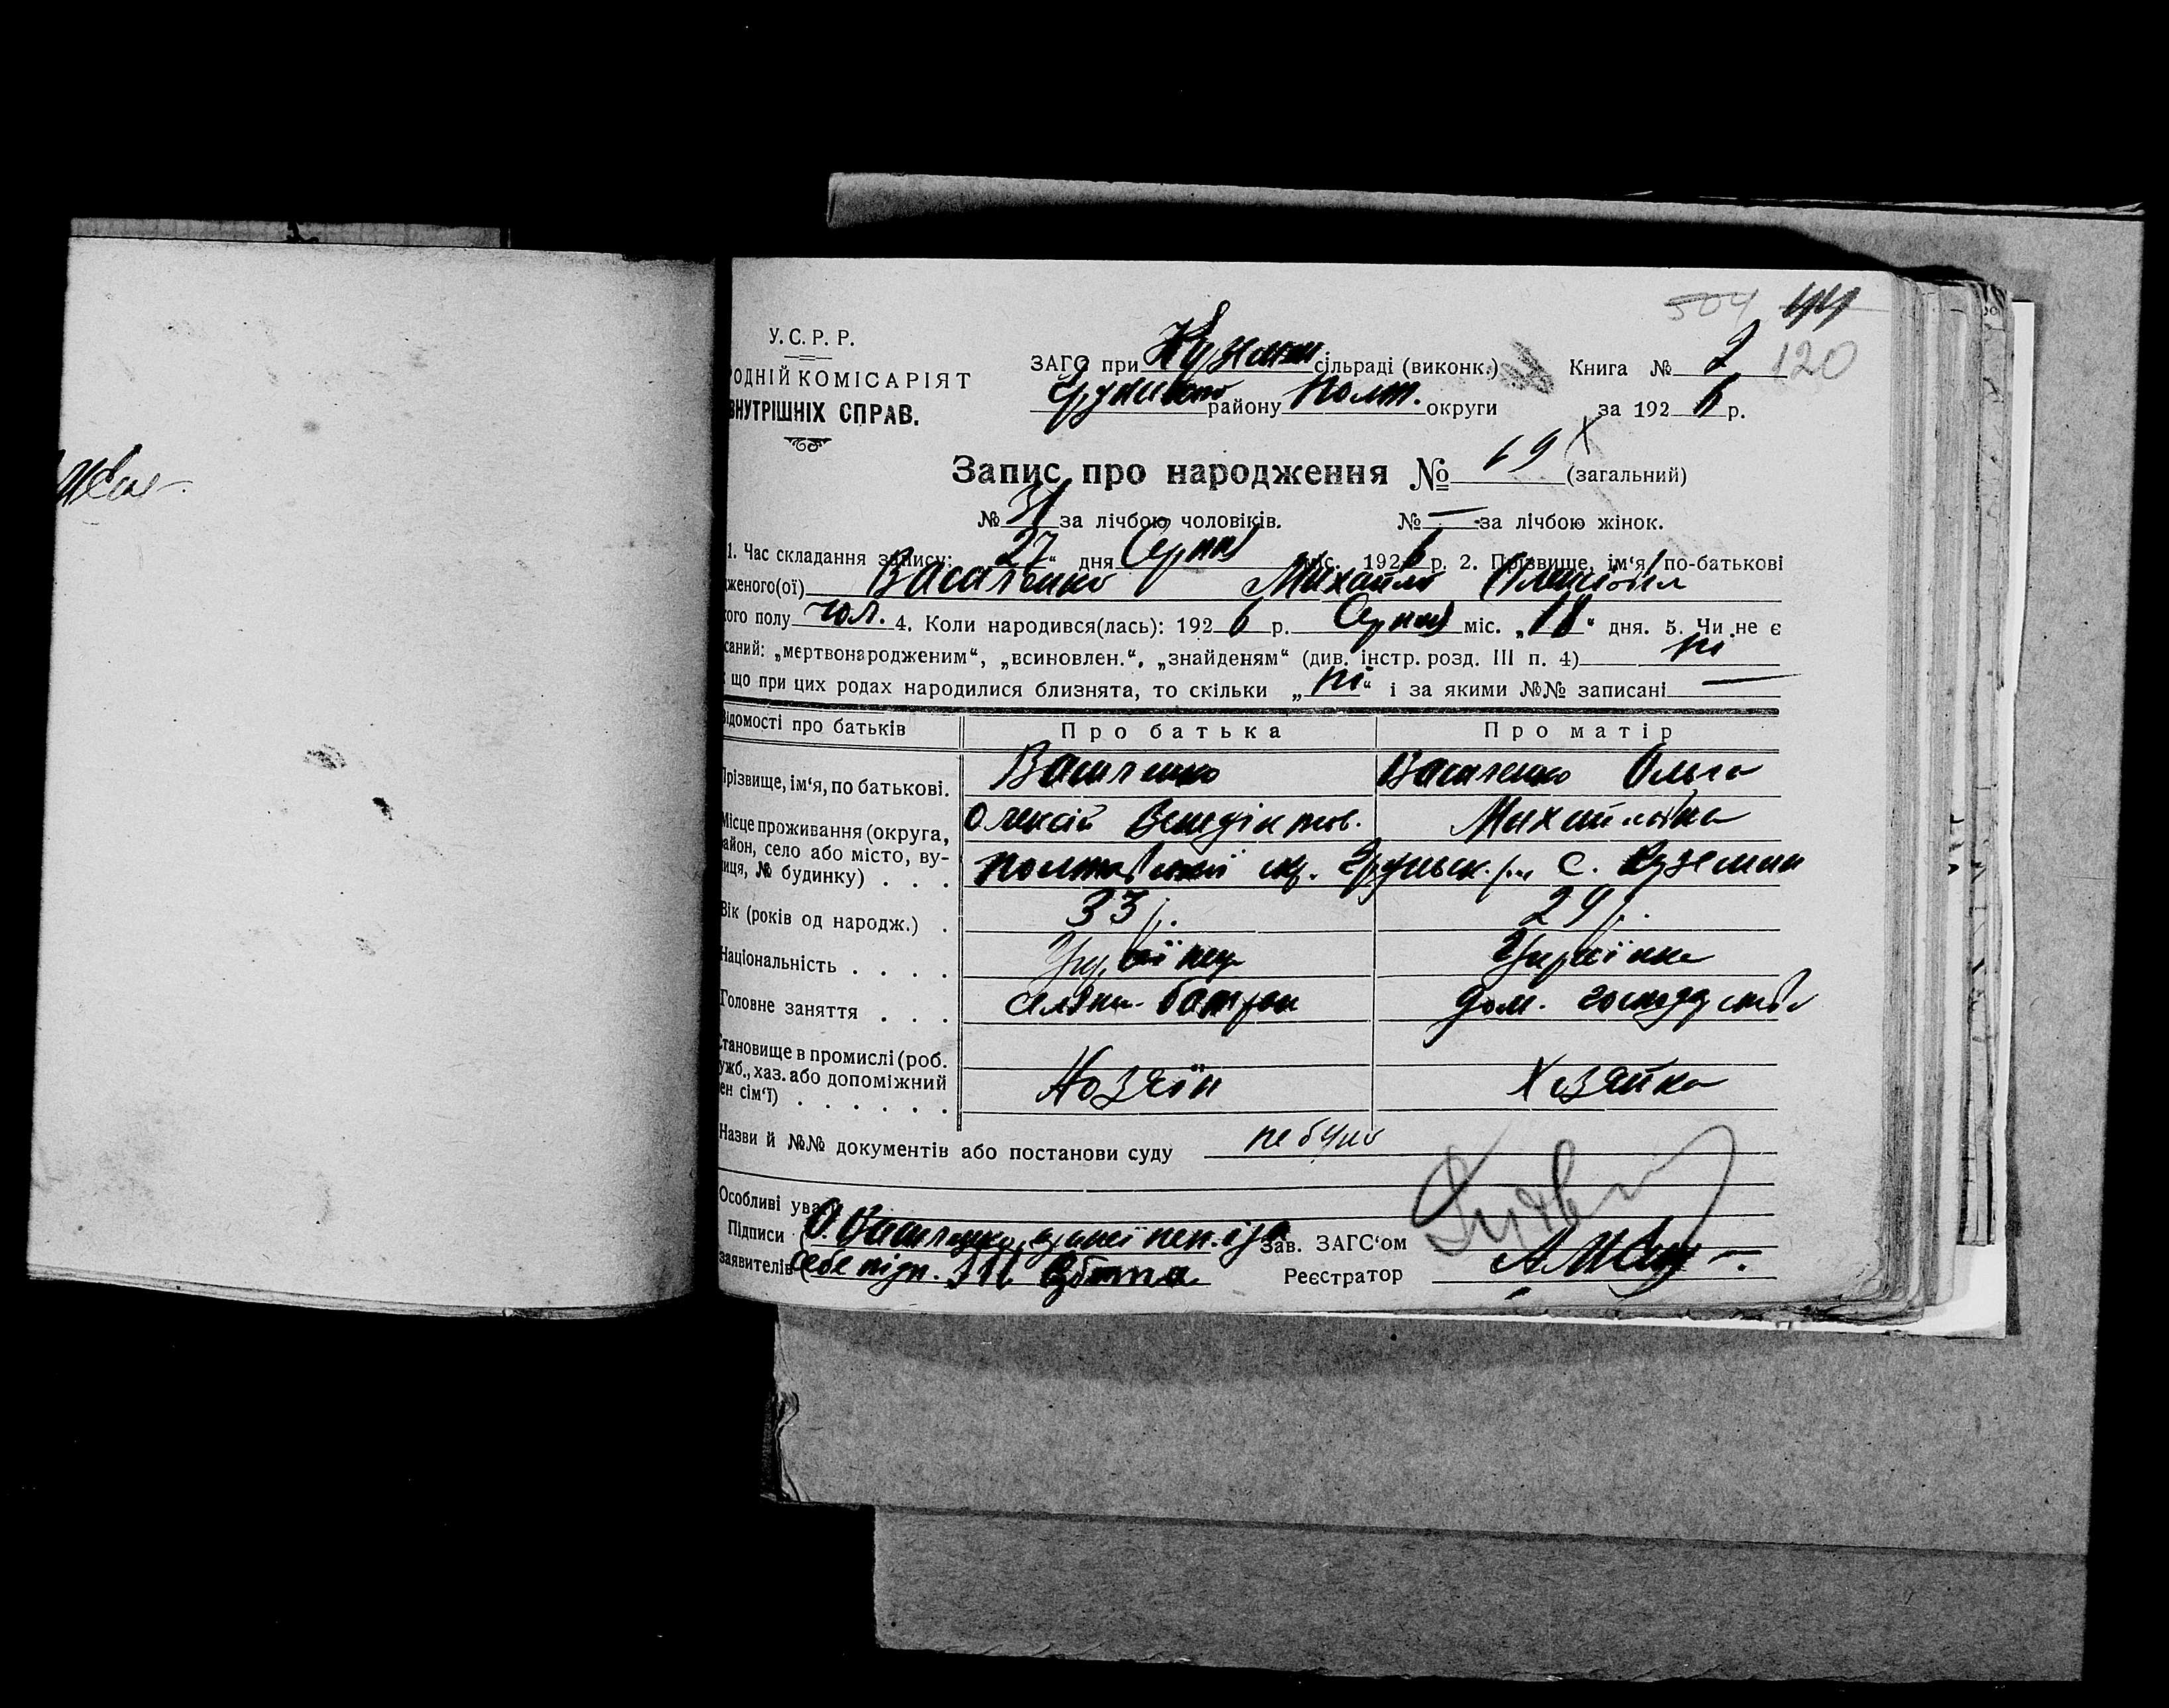 504 120
У. С. Р. Р.
РОДНІЙ КОМІСАРІЯТ
ВНУТРІШНІХ СПРАВ.
ЗАГС при Куземин сільраді (виконк.) Книга № 2
району Полт. округи за 1926 р.
Запис про народження № 69 (загальний)
№ 31 за лічбою чоловіків. № — за лічбою жінок.
1. Час складання запису: 27 " дня Серпня міс. 1926 р. 2. Прізвище, ім'я, по-батькові
дженого(ої) Василенко Михайло
кого полу чол. 4. Коли народився(лась): 1926 р. Серпня міс. „18" дня. 5. Чи не є
саний: „мертвонародженим", „всиновлен.", „знайденям" (див. інстр. розд. III п. 4) ні
що при цих родах народилися близнята, то скільки „ні" і за якими №№ записані —
Відомості про батьків Про батька Про матір
Прізвище, ім'я, по батькові. Василенко Василенко Ольга
Олексій Венедіктов. Михайлівна
Місце проживання (округа, район, село або місто, вулиця, № будинку) . . . Полтавської окр. Грунськ. р. с. Куземин
Вік (років од народж.) . 33 р. 29 р.
Національність . . . . Українець Українка
Головне заняття . . . дом. господарство
Становище в промислі (роб.
ужб., хаз. або допоміжний
ен сім'ї) . . . . . . Хозяїн Хозяйка
Назви й №№ документів або постанови суду не було
Особливі уваги
Підписи О. Василенко, Зав. ЗАГС'ом
заявителів себе підп. Реєстратор